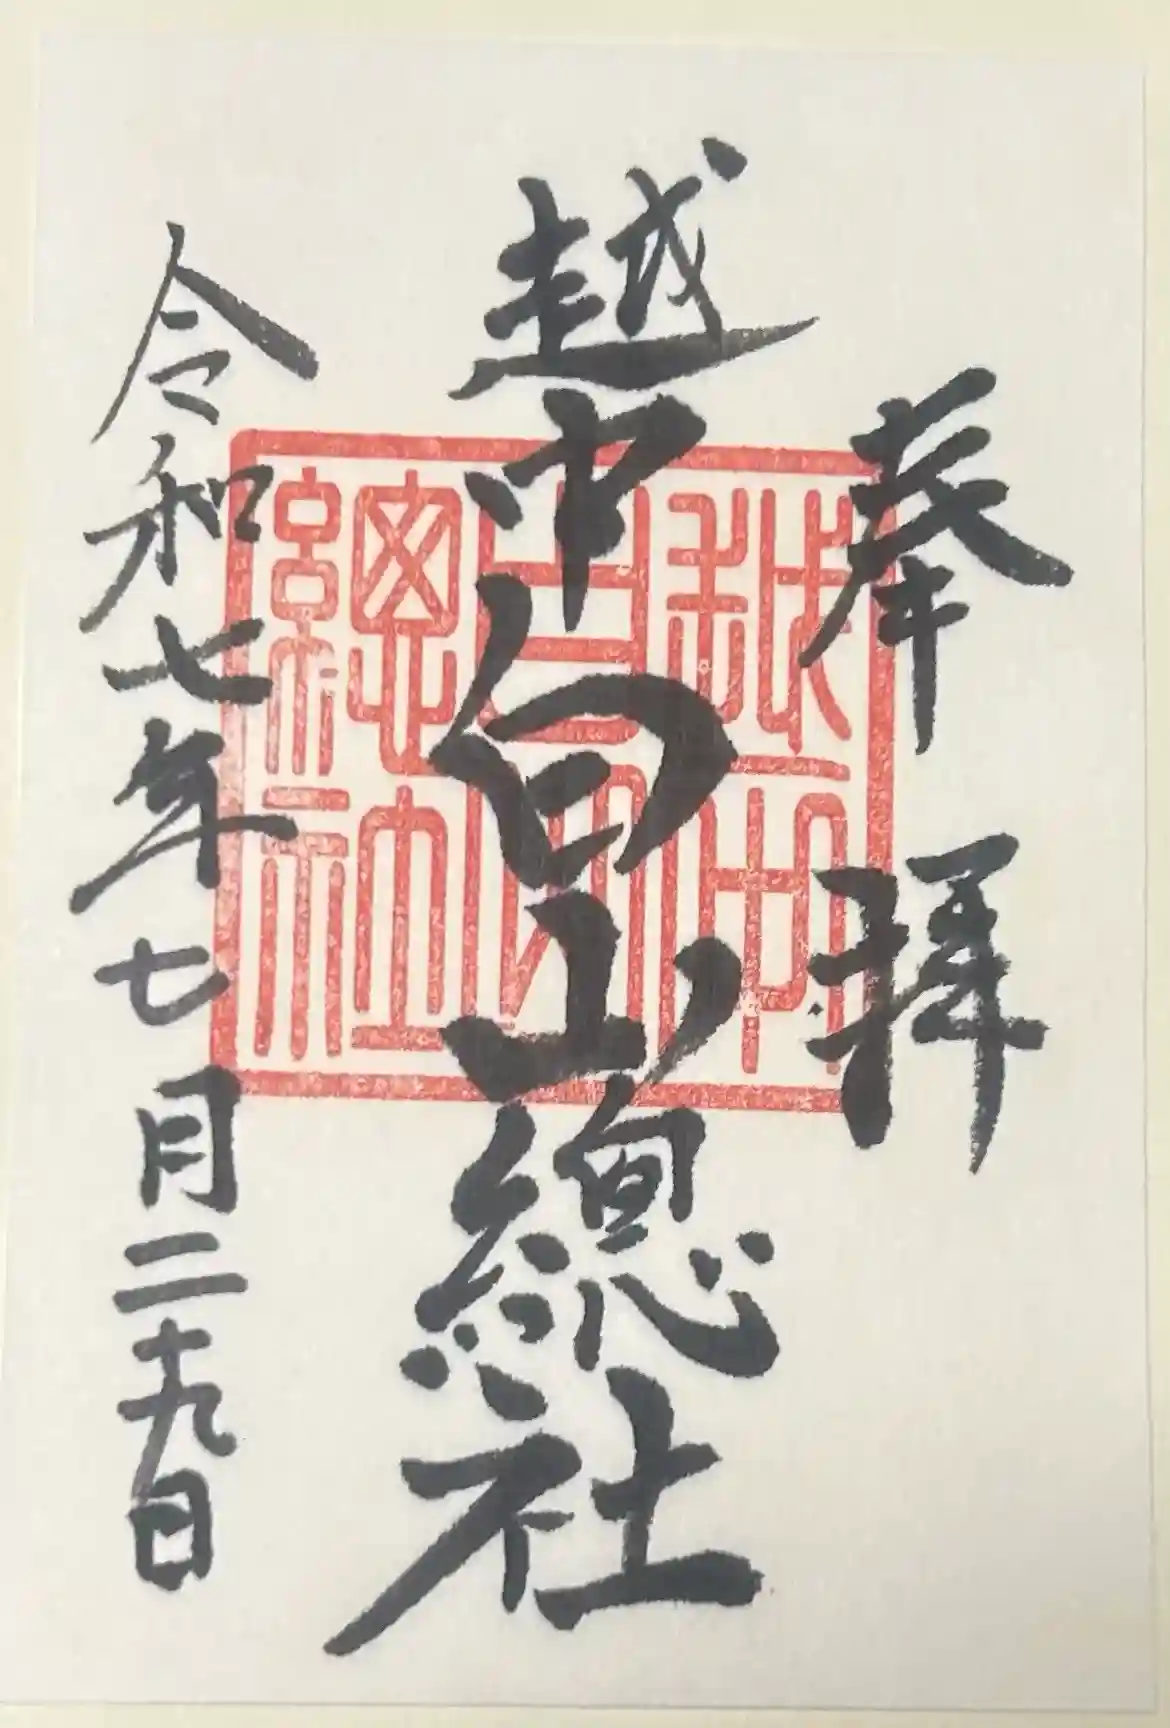 奉拝
越中白山總社
越中
白山
總社
令和七年七月二十九日